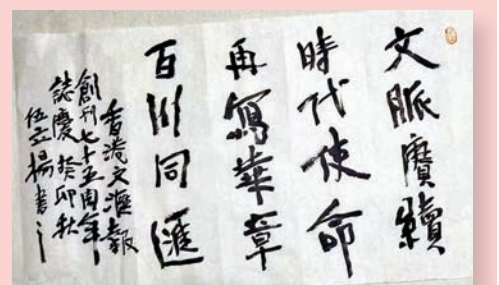 文脈賡續
時代使命
再寫華章
百川同匯
香港文滙報
創刊七十五周年
誌慶 癸卯秋
伍立揚書之